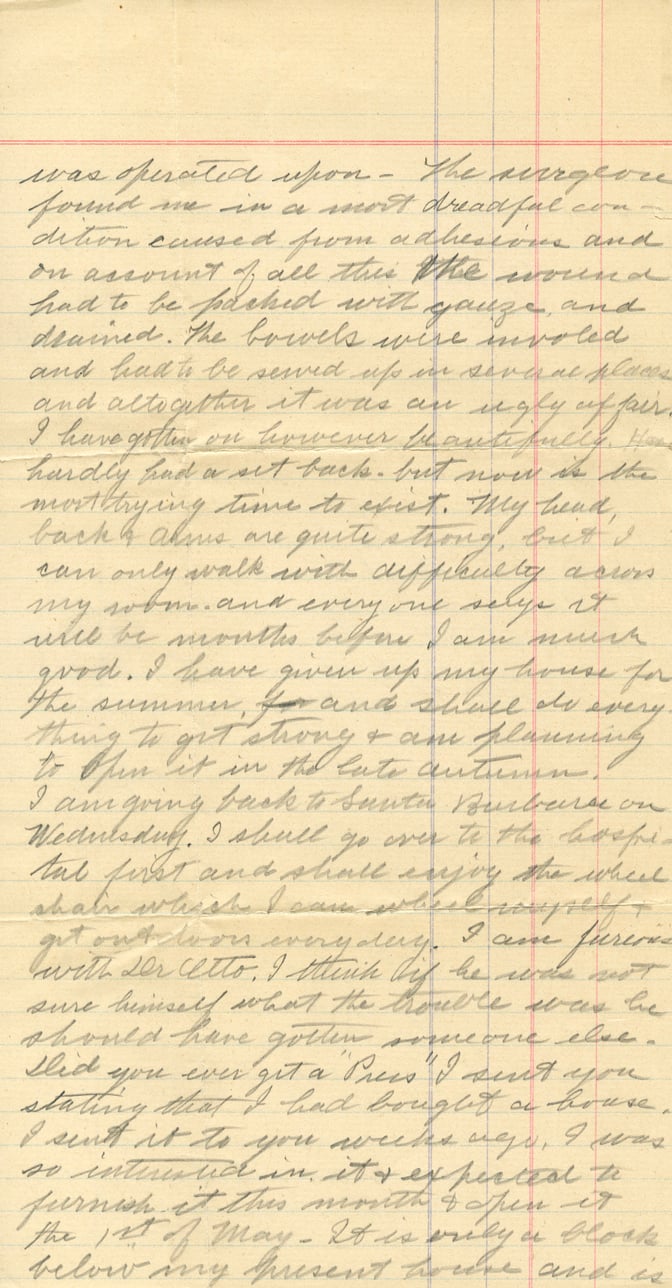 was operated upon - The surgeons
found me in a most dreadful con-
dition caused from adhesions and
on account of all this the wound
had to be packed with gauze and
drained. The bowels were involed
and had to be sewed up in several places
and altogether it was an ugly affair.
I have gotten on however beautifully. Have
hardly had a set back. but now is the
most trying time to exist. My head,
back & arms are quite strong, but I
can only walk with difficulty across
my room. and everyone says it
will be months before I am much
good. I have given up my house for
the summer, for and shall do every-
thing to get strong & am planning
to open it in the late autumn.
I am going back to Santa Barbara on
Wednesday. I shall go over to the hospi-
tal first and shall enjoy the wheel
chair which I can wheel myself &
get out doors every day. I am furious
with Dr Otto. I think if he was not
sure himself what the trouble was he
should have gotten someone else.
Did you ever get a "Press" I sent you
stating that I had bought a house.
I sent it to you weeks ago. I was
so interested in it & expected to
furnish it this month & open it
the 1st of May - It is only a block
below my present house and is